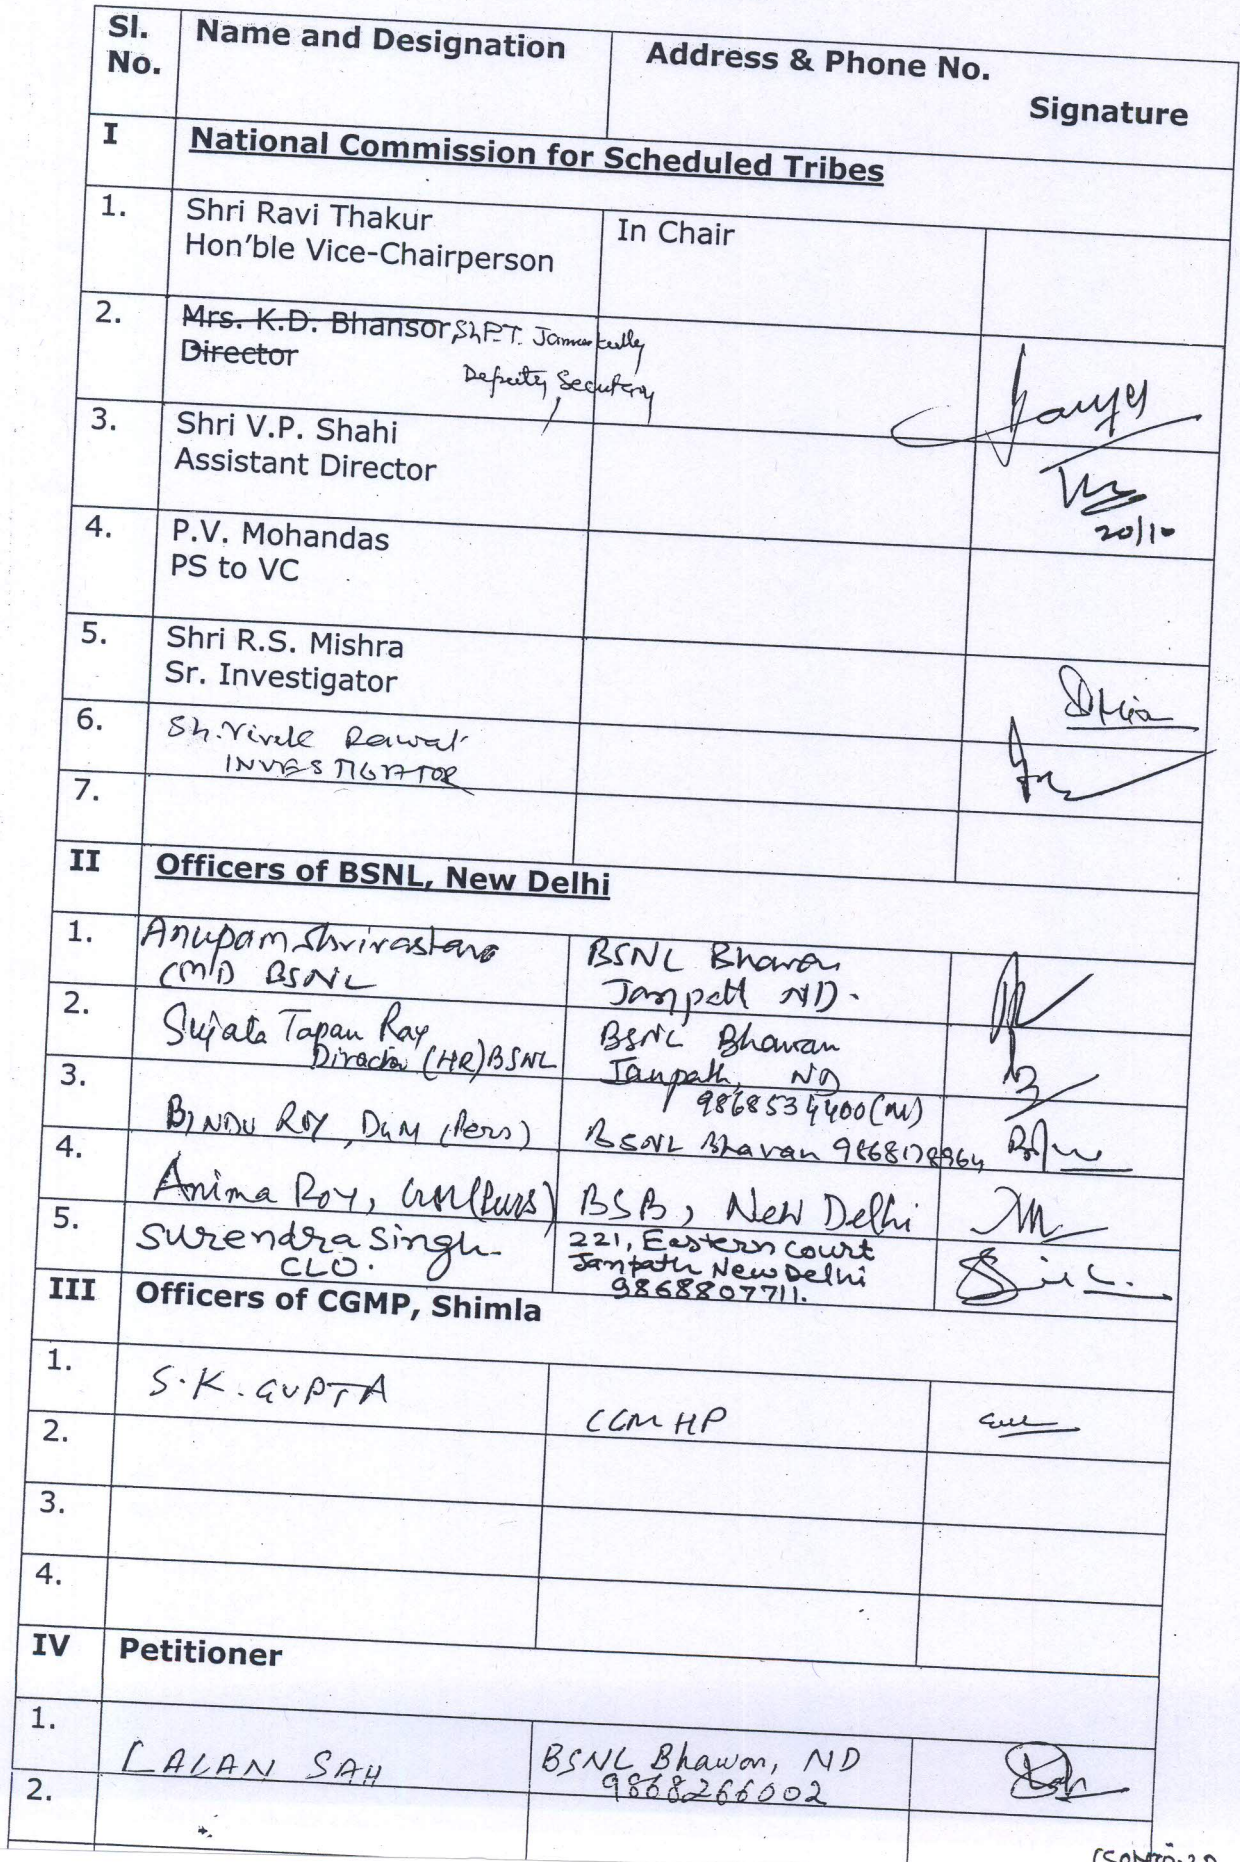 Sl. No.
Name and Designation
Address & Phone No.
Signature
I
National Commission for Scheduled Tribes
1.
Shri Ravi Thakur
Hon'ble Vice-Chairperson
In Chair
2.
Mrs. K.D. Bhansor Sh P.T.
Director
Deputy Secretary
3.
Shri V.P. Shahi
Assistant Director
20/10
4.
P.V. Mohandas
PS to VC
5.
Shri R.S. Mishra
Sr. Investigator
6.
Sh. Vivek Rawat
INVESTIGATOR
7.
II
Officers of BSNL, New Delhi
1.
Anupam Shrivastava
CMD BSNL
BSNL Bhavan
Janpath ND.
2.
Sujata Tapan Ray
Director (HR) BSNL
BSNL Bhawan
Janpath, ND
9868534400 (M)
3.
BINDU ROY, DGM (Pers)
BSNL Bhavan 9868178964
4.
Anima Roy, GM (Pers)
BSB, New Delhi
5.
Surendra Singh.
CLO.
221, Eastern Court
Janpath New Delhi
9868807711.
III
Officers of CGMP, Shimla
1.
S.K. GUPTA
CGM HP
2.
3.
4.
IV
Petitioner
1.
LALAN SAH
BSNL Bhawan, ND
9868266002
2.